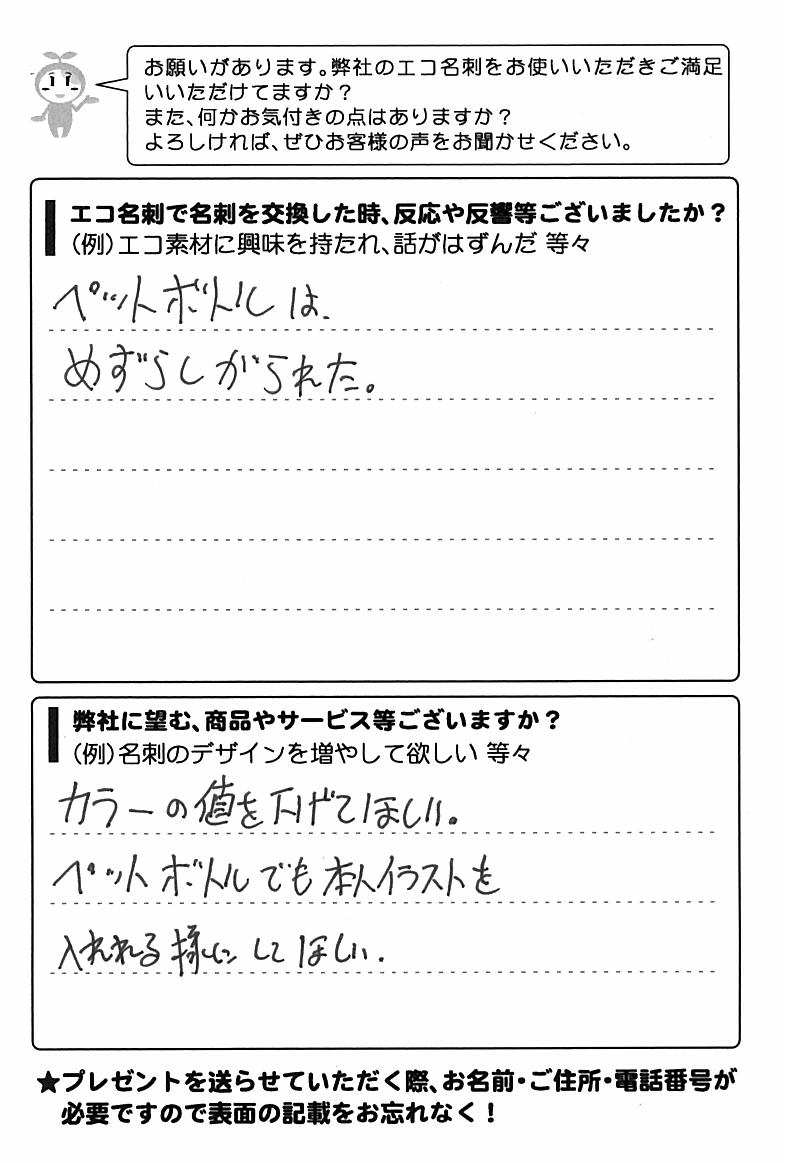 お願いがあります。弊社のエコ名刺をお使いいただきご満足
いいただけてますか？
また、何かお気付きの点はありますか？
よろしければ、ぜひお客様の声をお聞かせください。
エコ名刺で名刺を交換した時、反応や反響等ございましたか？
（例）エコ素材に興味を持たれ、話がはずんだ 等々
ペットボトルは、
めずらしがられた。
弊社に望む、商品やサービス等ございますか？
（例）名刺のデザインを増やして欲しい 等々
カラーの値を下げてほしい。
ペットボトルでも本人イラストを
入れれる様にしてほしい.
★プレゼントを送らせていただく際、お名前・ご住所・電話番号が
必要ですので表面の記載をお忘れなく！